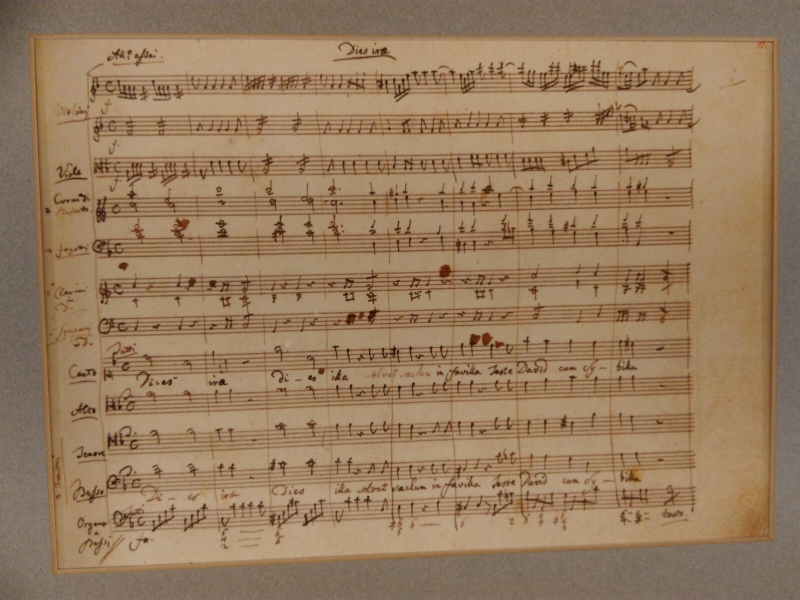 Dies irae
All:º assai.
Violini
f.
f.
Viole
f.
2 Corni di
Bassetto
2 Fagotti
2 Clarini
in
D.
Timpani
in D.
Canto
Dies irae di - es illa solvet saeclum in favilla Teste David cum Sy - billa
Alto
Tenore
Basso
Di - es irae Dies illa solvet saeclum in favilla Teste David cum Sy - billa
Organo
e
Bassi
fo.
tasto